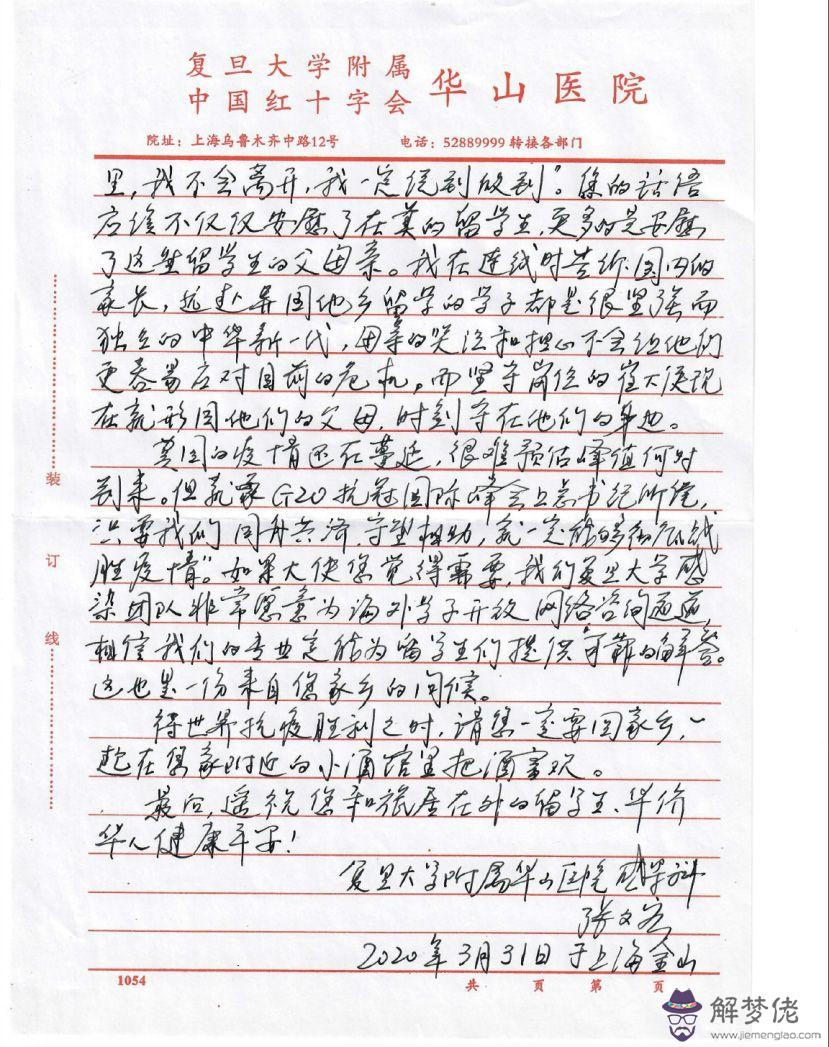 复旦大学附属
中国红十字会 华山医院
院址：上海乌鲁木齐中路12号 电话：52889999 转接各部门
里，我不会离开，我一定说到做到”。您的话语
应该不仅仅安慰了在英的留学生，更多的是安慰
了这些留学生的父母亲。我在连线时告诉国内的
家长，远赴异国他乡留学的学子都是很坚强而
独立的中华新一代，母亲的哭泣和担心不会让他们
更容易应对目前的危机，而坚守岗位的崔大使现
在就形同他们的父母，时刻守在他们的身边。
英国的疫情还在蔓延，很难预估峰值何时
到来。但就像G20抗冠国际峰会上总书记所说，
“只要我们同舟共济、守望相助，就一定能够彻底战
胜疫情”。如果大使您觉得需要，我们复旦大学感
染团队非常愿意为海外学子开放网络咨询通道，
相信我们的专业定能为留学生们提供可靠的解答。
这也是一份来自您家乡的问候。
待世界抗疫胜利之时，请您一定要回家乡，一
起在您家附近的小酒馆里把酒言欢。
最后，遥祝您和旅居在外的留学生、华侨
华人健康平安！
复旦大学附属华山医院感染科
张文宏
2020年3月31日于上海金山
装
订
线
1054 共 页 第 页
解梦佬
www.jiemenglao.com